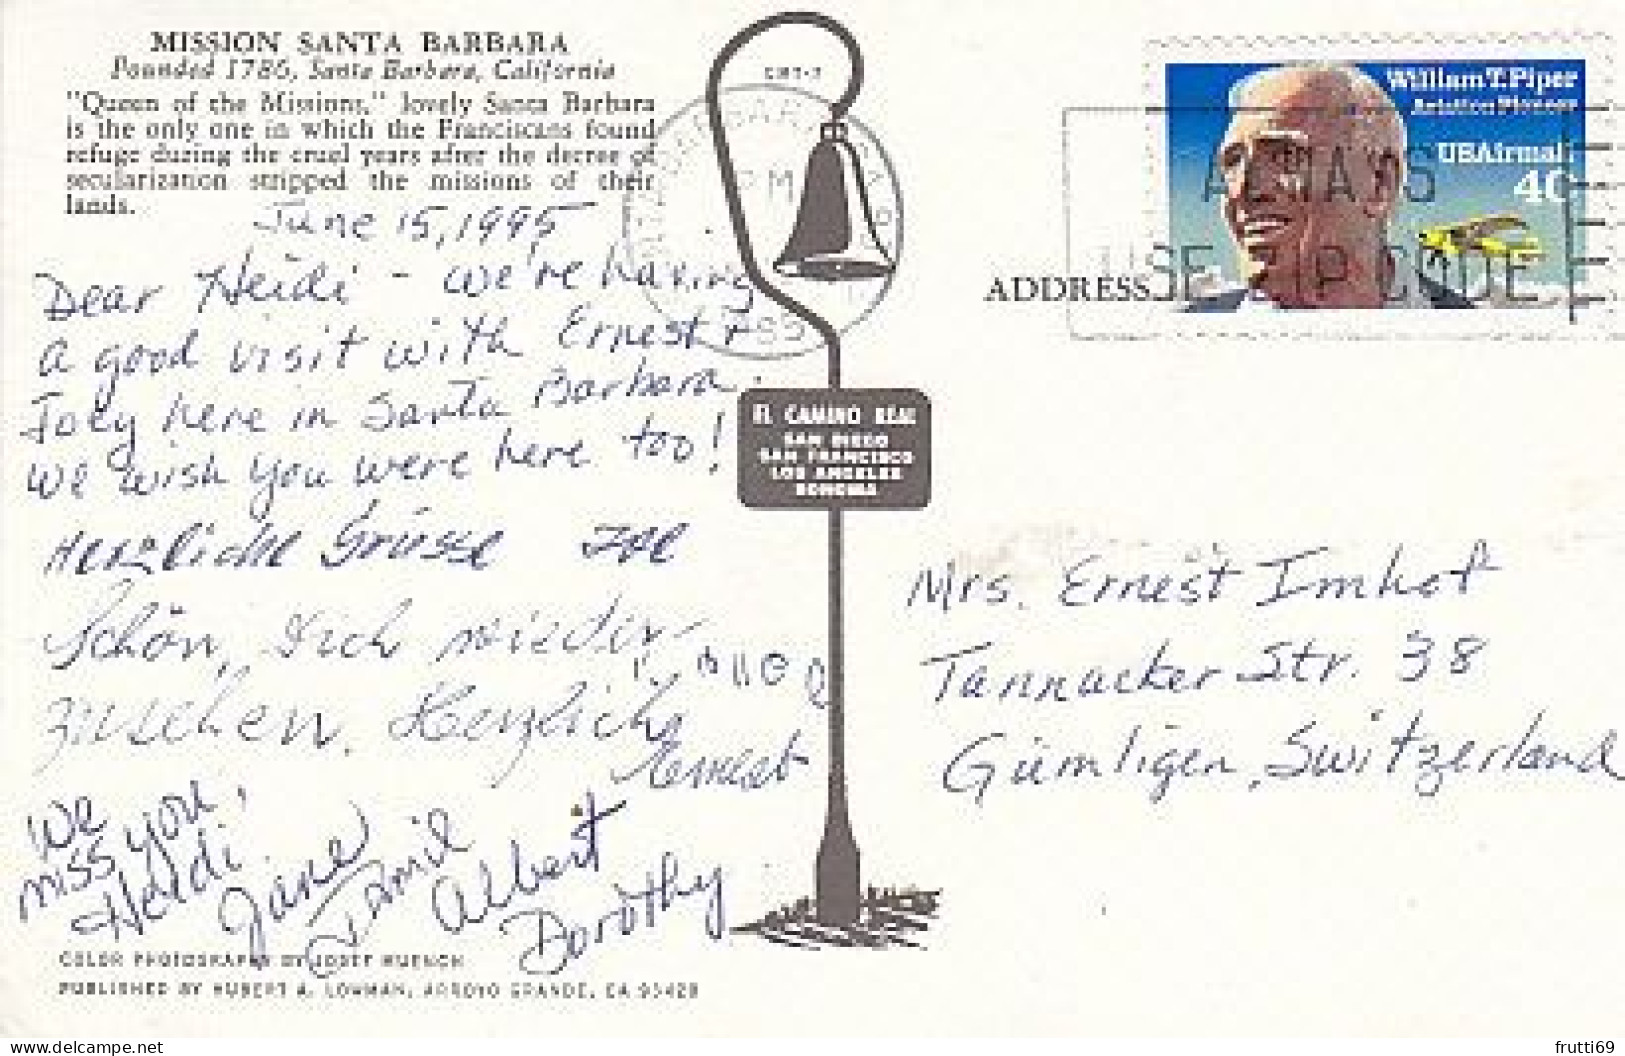 MISSION SANTA BARBARA
Founded 1786, Santa Barbara, California
"Queen of the Missions," lovely Santa Barbara
is the only one in which the Franciscans found
refuge during the cruel years after the decree of
secularization stripped the missions of their
lands.
June 15, 1995
Dear Heidi - we're having
a good visit with Ernest +
Joey here in Santa Barbara.
We wish you were here too!
Herzliche Grüsse
Schön, Dich wieder
zusehen. Herzlich
Ernest
We
miss you,
Heidi
Jane
Jamie
Albert
Dorothy
COLOR PHOTOGRAPHY BY JOSEF MUENCH
PUBLISHED BY HUBERT A. LOWMAN, ARROYO GRANDE, CA 93420
PM
EL CAMINO REAL
SAN DIEGO
SAN FRANCISCO
LOS ANGELES
SONOMA
William T. Piper
Aviation Pioneer
USAirmail
40
ALWAYS
USE ZIP CODE
ADDRESS
Mrs. Ernest Imhof
Tannacker Str. 38
Gümligen, Switzerland
delcampe.net
frutti69